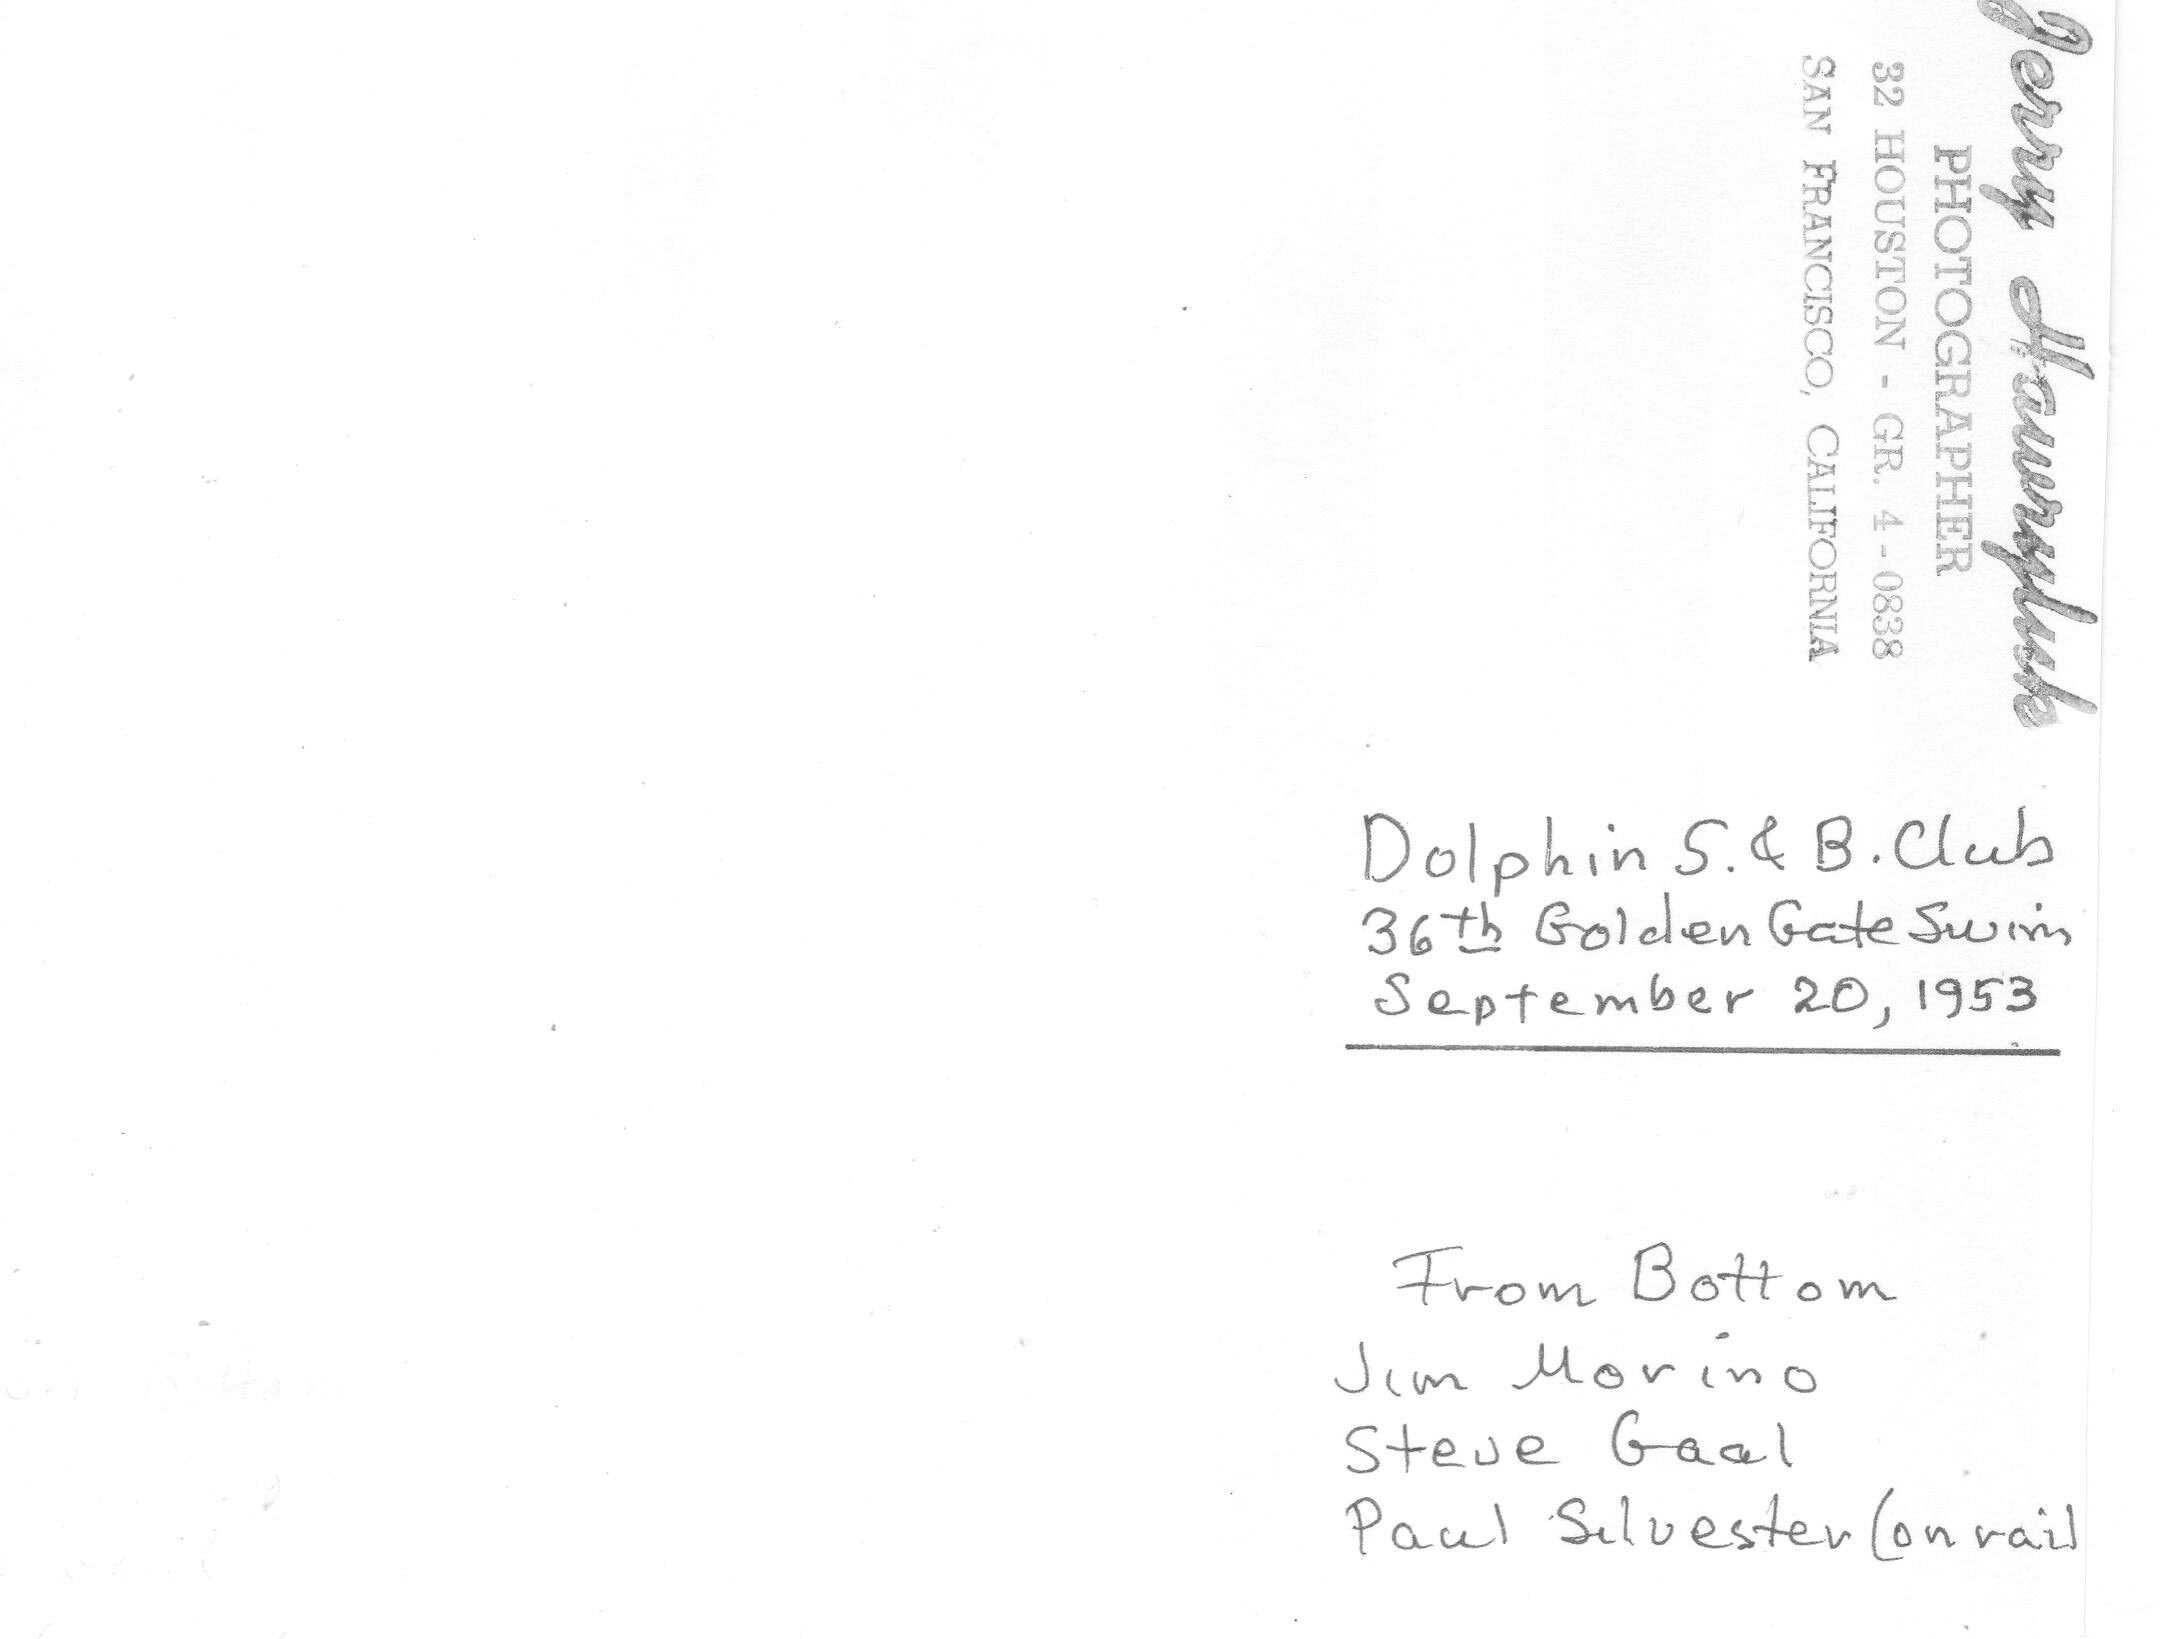 Jerry Hawryluk
PHOTOGRAPHER
32 HOUSTON - GR. 4-0838
SAN FRANCISCO, CALIFORNIA
Dolphin S. & B. Club
36th Golden Gate Swim
September 20, 1953
From Bottom
Jim Morino
Steve Gaal
Paul Silvester (on rail